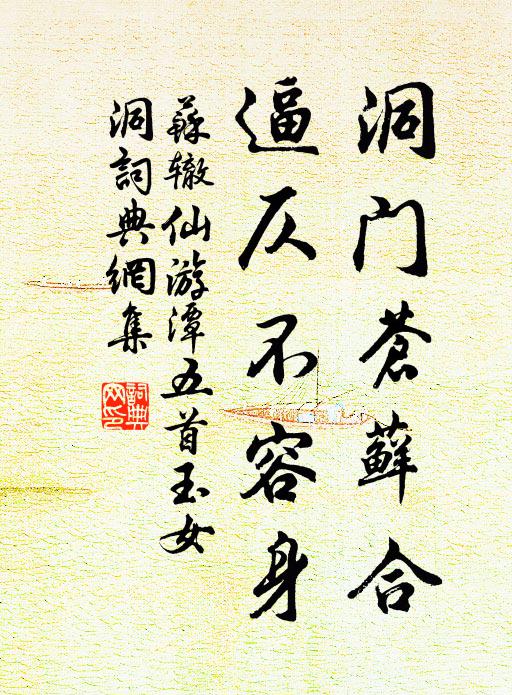 洞门苍藓合
逼仄不容身
蘇辙仙游潭五首玉女
洞詞典網集
詞典
网印